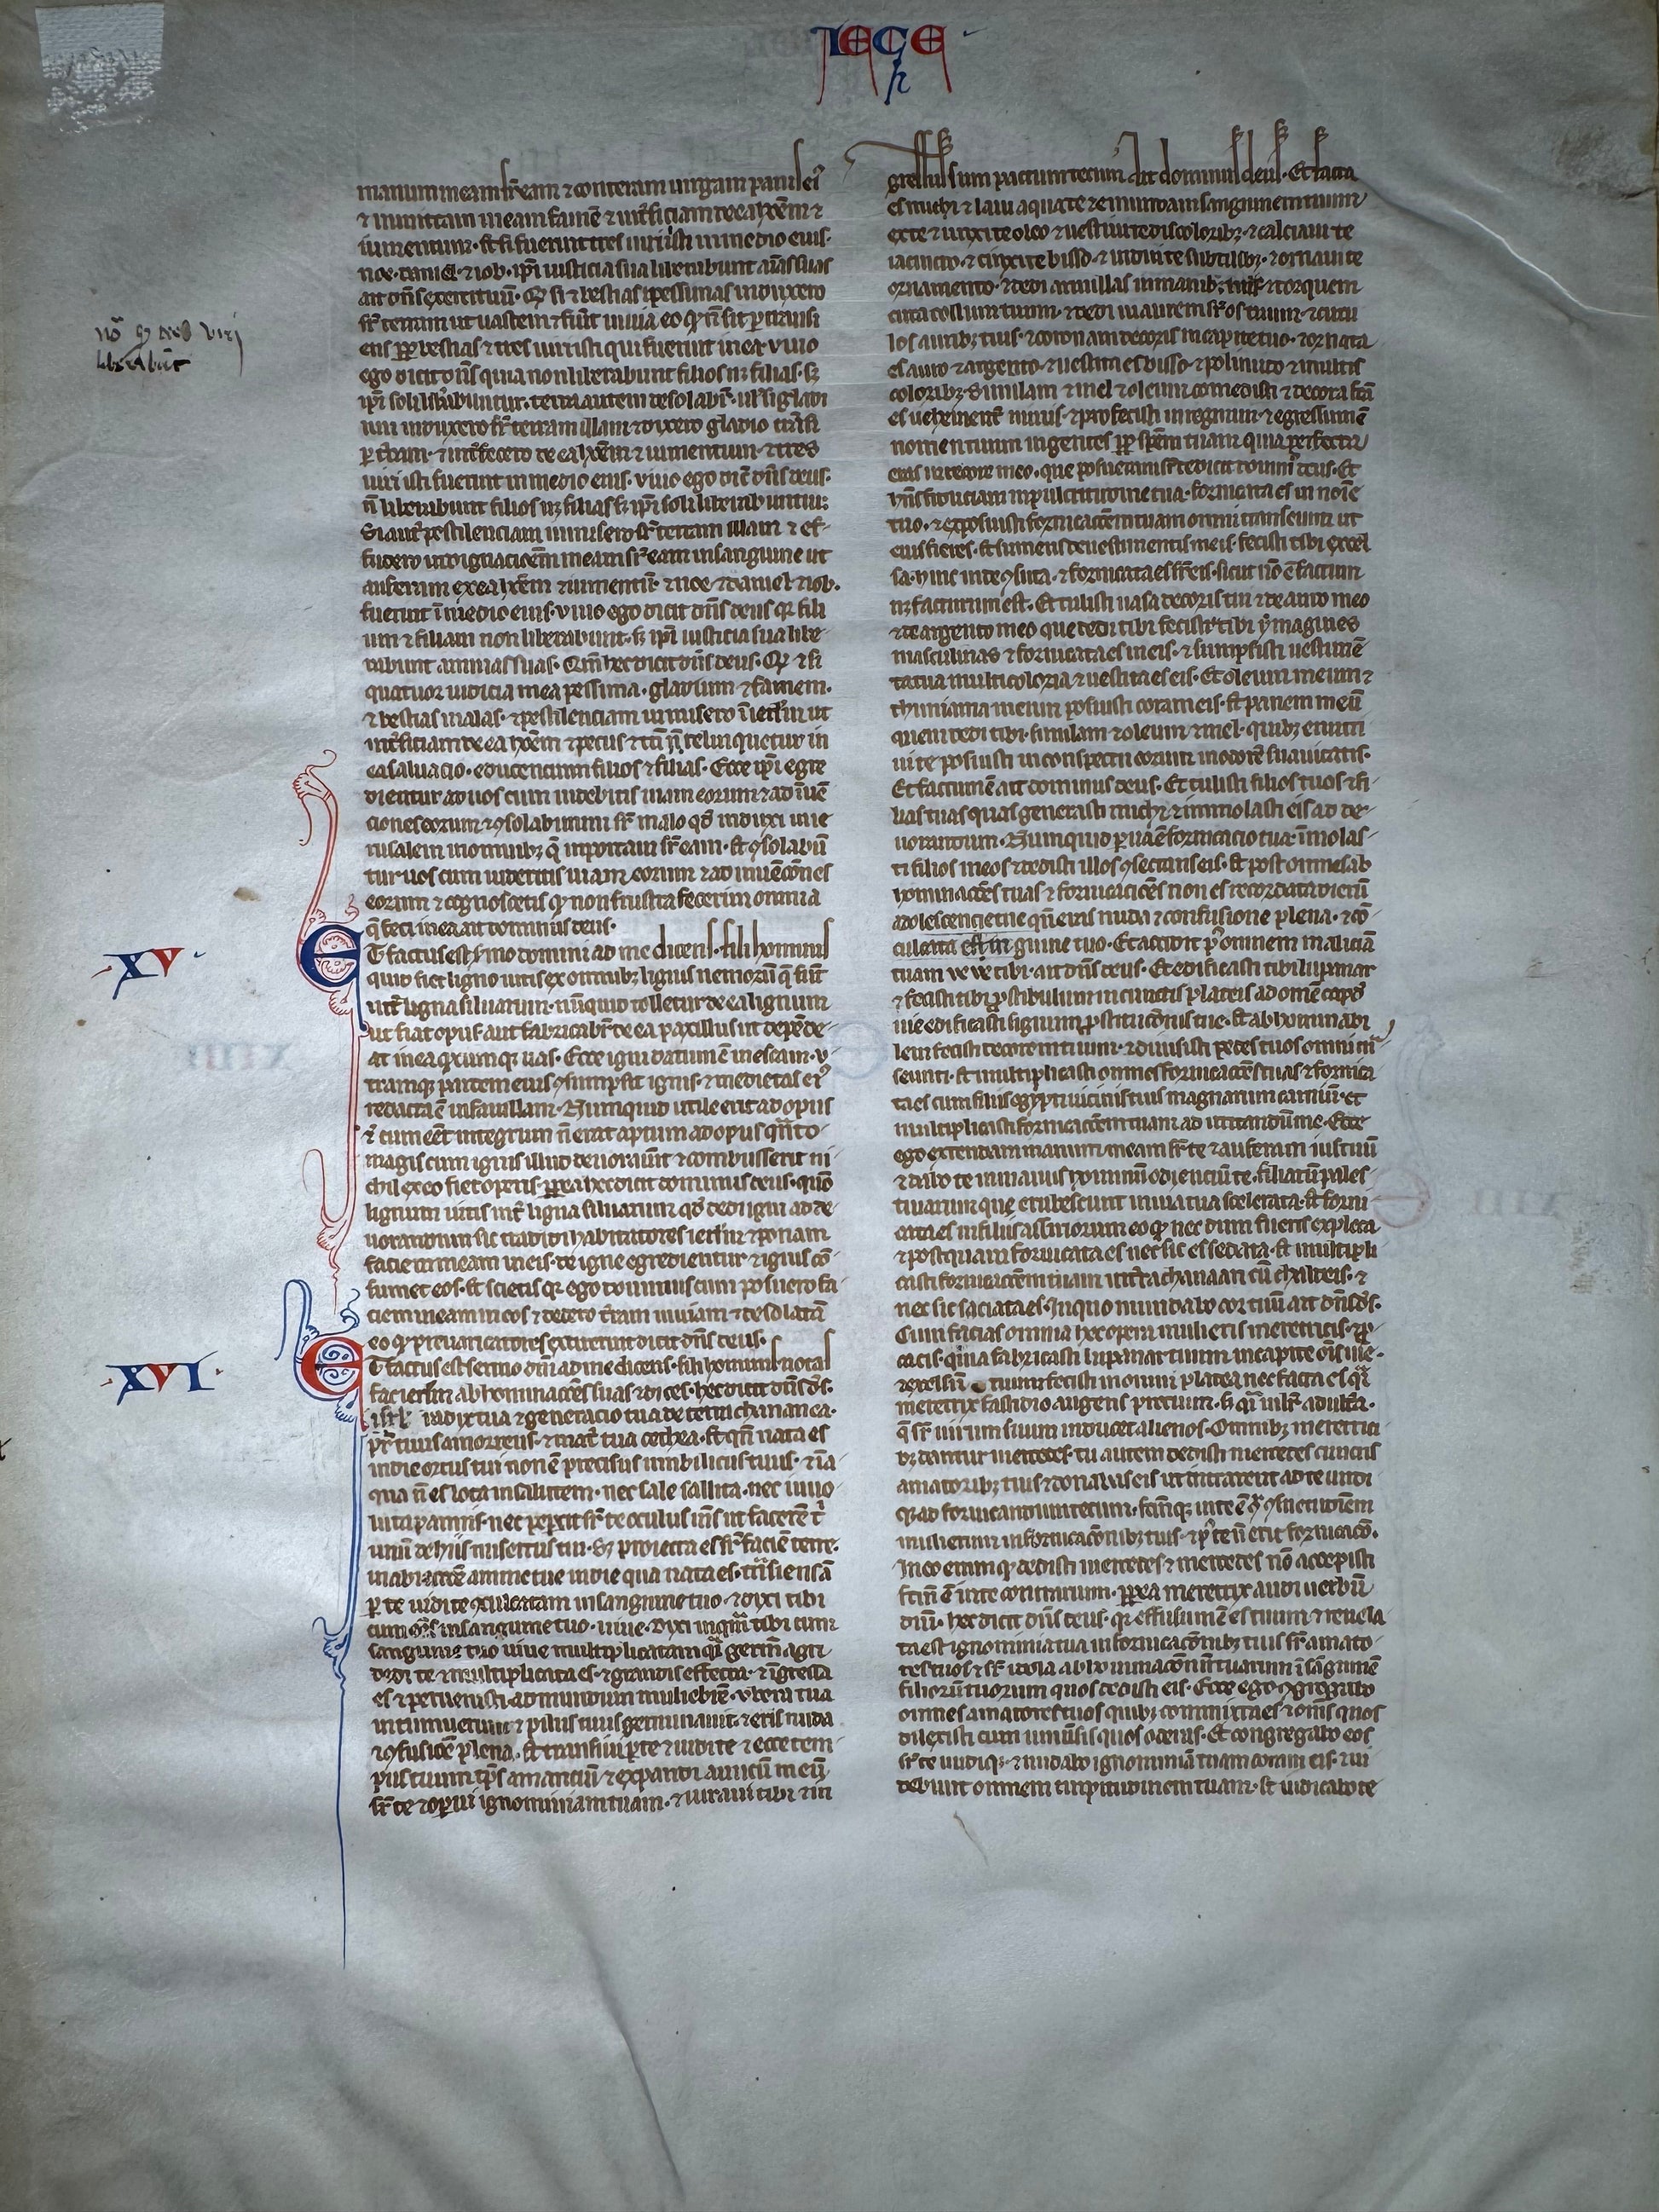 IECE
h
manum meam sr̄ eam ⁊ conteram uirgam panis ei᷒
⁊ inmittam in eam famē ⁊ int̄ficiam de ea hoīem ⁊
iumentum. Et si fuerint tres uiri isti in medio eius.
noe. daniel. ⁊ iob. ip̄i iusticia sua liberabunt aīas suas
ait dn̄s exercituū. Qḍ si ⁊ bestias pessimas induxero
sr̄ terram ut uastem ⁊ fiūt inuia eo qḍ n̄ sit ꝑtransi
ens ꝓp̄ bestias ⁊ tres uiri isti qui fuerint in ea. viuo
ego dicit dn̄s quia non liberabunt filios nꝫ filias. sꝫ
ip̄i soli lib̄abuntur. terra autem desolabit̄. uł si gladi
um induxero sr̄ terram illam ⁊ dixero gladio tn̄si
ꝑ t̄ram. ⁊ int̄fecero de ea hoīem ⁊ iumentum. ⁊ tres
uiri isti fuerint in medio eius. viuo ego dic̄ dn̄s deus.
n̄ liberabunt filios nꝫ filias sꝫ ip̄i soli liberabuntur.
Si aut̄ pestilenciam inmisero sr̄ terram illam ⁊ ef-
fudero indignacōem meam sr̄ eam in sanguine ut
auferam ex ea hoīem ⁊ iumentū. ⁊ noe ⁊ daniel ⁊ iob.
fuerint ī medio eius. viuo ego dicit dn̄s deus qꝛ fili
um ⁊ filiam non liberabunt. sꝫ ip̄i iusticia sua libe-
rabunt animas suas. Qm̄ hec dicit dn̄s deus. Qḍ ⁊ si
quatuor iudicia mea pessima. gladium ⁊ famem.
⁊ bestias malas. ⁊ pestilenciam inmisero ī ierlm̄ ut
int̄ficiam de ea hoīem ⁊ pecus ⁊ tn̄ relinquetur in
ea saluacio. educencium filios ⁊ filias. Ecce ip̄i egre
dientur ad uos cum uidebitis uiam eorum ⁊ ad īuē
ciones eorum ⁊ ꝯsolabimini sr̄ malo qḍ induxi in ie
rusalem in omnibꝫ q̄ inportaui sr̄ eam. Et ꝯsolabū
tur uos cum uideritis uiam eorum ⁊ ad inuēcōnes
eorum ⁊ cognoscetis qḍ non frustra fecerim omnia
q̄ feci in ea ait dominus deus.
XV
ET factus est sermo domini ad me dicens. fili hominis
quid fiet ligno uitis ex omnibꝫ lignis nemorū q̄ sūt
int̄ ligna siluarum. nūquid tolletur de ea lignum
ut fiat opus aut fabricabit̄ de ea paxillus ut depēde-
at in ea qḍcumqꝫ uas. Ecce igni datum ē in escam. v-
tramqꝫ partem eius ꝯsumpsit ignis. ⁊ medietas ei᷒
redacta ē in fauillam. Numquid utile erit ad opus
⁊ cum eēt integrum n̄ erat aptum ad opus q̄nto-
magis cum ignis illud deuorauit ⁊ combusserit ni-
chil ex eo fiet operis. ꝓp̄ea hec dicit dominus deus. quō
lignum uitis int̄ ligna siluarum qḍ dedi igni ad de-
uorandum sic tradidi habitatores ierlm̄ ⁊ ponam
faciem meam in eis. de igne egredientur ⁊ ignis cō-
sumet eos. Et scietis qꝛ ego dominus cum posuero fa-
ciem meam in eos ⁊ dedero t̄ram inuiam ⁊ desolatā
eo qḍ p̄uaricatores extiterint dicit dn̄s deus.
XVI
ET factus est sermo dn̄i ad me dicens. fili hominis notas
fac ierlm̄ abhominacōes suas ⁊ dices. hec dicit dn̄s ds̄.
radix tua ⁊ generacio tua de terra chananea.
pr̄ tuus amorreus. ⁊ mat̄ tua cethea. Et qn̄ nata es
in die ortus tui non ē precisus umbilicus tuus. ⁊ ī a-
qua n̄ es lota in salutem. nec sale salita. nec inuo-
luta pannis. nec pepercit sr̄ te oculus ut facerēt t̄
unū de hiis misertus tui. Sꝫ proiecta es sr̄ faciē terre.
in abiectōe anime tue in die qua nata es. tn̄siens ā
ꝑ te uidi te ꝯculcatam in sanguine tuo. ⁊ dixi tibi
cum eēs in sanguine tuo. uiue. Dixi inquā tibi cum
sanguine tuo uiue multiplicatam q̄i germē agri
dedi te ⁊ multiplicata es. ⁊ grandis effecta. ⁊ īgressa
es ⁊ peruenisti ad mundum muliebrē. vbera tua
intumuerunt ⁊ pilus tuus germinauit. ⁊ eras nuda
⁊ ꝯfusiōe plena. Et transiui ꝑ te ⁊ uidi te ⁊ ecce tem-
pus tuum tp̄s amanciū ⁊ expandi amictū meū
sr̄ te ⁊ oꝑui ignominiam tuam. ⁊ iuraui tibi ⁊ in
nō qḍ tres viri
liberabūt
gressus sum pactum tecum Ait dominus deus. Et facta
es michi ⁊ laui aqua te ⁊ emundaui sanguinem tuum
ex te ⁊ unxi te oleo ⁊ uestiui te discoloribꝫ ⁊ calciaui te
iacincto. ⁊ cinxi te bisso. ⁊ indui te subtilibꝫ. ⁊ ornaui te
ornamento. ⁊ dedi armillas in manibꝫ tuis ⁊ torquem
circa collum tuum. ⁊ dedi inaurem sr̄ os tuum. ⁊ circu
los auribꝫ tuis. ⁊ coronam decoris in capite tuo. ⁊ ornata
es auro ⁊ argento. ⁊ uestita es bisso. ⁊ polimito ⁊ multis
coloribꝫ. Similam ⁊ mel ⁊ oleum comedisti ⁊ decora fc̄a
es uehement̄ nimis. ⁊ profecisti in regnum ⁊ egressum ē
nomen tuum in gentes ꝓp̄ spēm tuam quia perfecta
eras in decore meo. que posueram sr̄ te dicit domin᷒ deus. Et
hn̄s fiduciam in pulcritudine tua. fornicata es in noīe
tuo. ⁊ exposuisti fornicacōem tuam omni transeunti ut
eius fieres. Et sumens de uestimentis meis. fecisti tibi excel
sa. hinc inde ꝯsuta. ⁊ fornicata es sr̄ eis. sicut nō ē factum
nꝫ futurum est. Et tulisti uasa decoris tui ⁊ de auro meo
⁊ de argento meo que dedi tibi fecisti tibi ymagines
masculinas ⁊ fornicata es in eis. ⁊ sumpsisti uestimē
ta tua multicoloria ⁊ uestita es eis. Et oleum meum ⁊
thimiama meum posuisti coram eis. Et panem meū
quem dedi tibi. similam ⁊ oleum ⁊ mel. quibꝫ enutri
ui te posuisti in conspectu eorum in odorē suauitatis.
Et factum ē ait dominus deus. Et tulisti filios tuos ⁊ fi-
lias tuas quas generasti michi ⁊ immolasti eis ad de-
uorandum. Numquid parua ē fornicacio tua. īmolas-
ti filios meos ⁊ dedisti illos ꝯsecrans eis. Et post omnes ab
hominacōes tuas ⁊ fornicacōes non es recordata dierū
adolescencie tue qn̄ eras nuda ⁊ confusione plena. ⁊ cō-
culcata es in guine tuo. Et accidit p᷒ omnem maliciā
tuam ve ve tibi. ait dn̄s deus. Et edificasti tibi lupanar
⁊ fecisti tibi ꝓstibulum in cunctis plateis ad omē caput
uie edificasti signum ꝓstitucōnis tue. Et abhominabi
lem fecisti decorem tuum. ⁊ diuisisti pedes tuos omni tn̄
seunti. Et multiplicasti omnes fornicacōes tuas ⁊ fornica
ta es cum filiis egypti uicinis tuis magnarum carniū. et
multiplicasti fornicacōem tuam ad irritandū me. Ecce
ego extendam manum meam sr̄ te ⁊ auferam ius tuū
⁊ dabo te in manus hominū odienciū te. filiarū pales-
tinarum que erubescunt in uia tua scelerata. Et forni-
cata es in filiis assiriorum eo qḍ nec dum fueris expleta
⁊ postquam fornicata es nec sic es sedata. Et multipli
casti fornicacōem tuam in t̄ra chanaan cū chaldeis. ⁊
nec sic saciata es. In quo mundabo cor tuū ait dn̄s ds̄.
Cum facias omnia hec opera mulieris meretricis. ⁊ ꝓ-
cacis. quia fabricasti lupanar tuum in capite oīs uie.
⁊ excelsū tuum fecisti in omni platea nec facta es q̄i
meretrix fastidio augens precium. sꝫ q̄i mulr̄ adultera.
q̄ sr̄ uirum suum inducet alienos. Omnibꝫ meretrici
bꝫ dantur mercedes. tu autem dedisti mercedes cunctis
amatoribꝫ tuis ⁊ donabas eis ut intrarent ad te undi
qꝫ ad fornicandum tecum. factūqꝫ in te ē ꝯtra ꝯsuetudinem
mulierum in fornicacōnibꝫ tuis. ⁊ p᷒ te n̄ erit fornicacō.
In eo enim qḍ dedisti mercedes ⁊ mercedes nō accepisti
fc̄m ē in te contrarium. ꝓp̄ea meretrix audi uerbū
dn̄i. hec dicit dn̄s deus. qꝛ effusum ē es tuum ⁊ reuela
ta est ignominia tua in fornicacōnibꝫ tuis sr̄ amato-
res tuos ⁊ sr̄ idola abhominacōnū tuarum ī sāguine
filiorū tuorum quos dedisti eis. Ecce ego ꝯgregabo
omnes amatores tuos quibꝫ commixta es ⁊ omīs quos
dilexisti cum uniūsis quos oderas. Et congregabo eos
sr̄ te undiqꝫ. ⁊ nudabo ignominiā tuam coram eis. ⁊ ui
debunt omnem turpitudinem tuam. Et iudicabo te